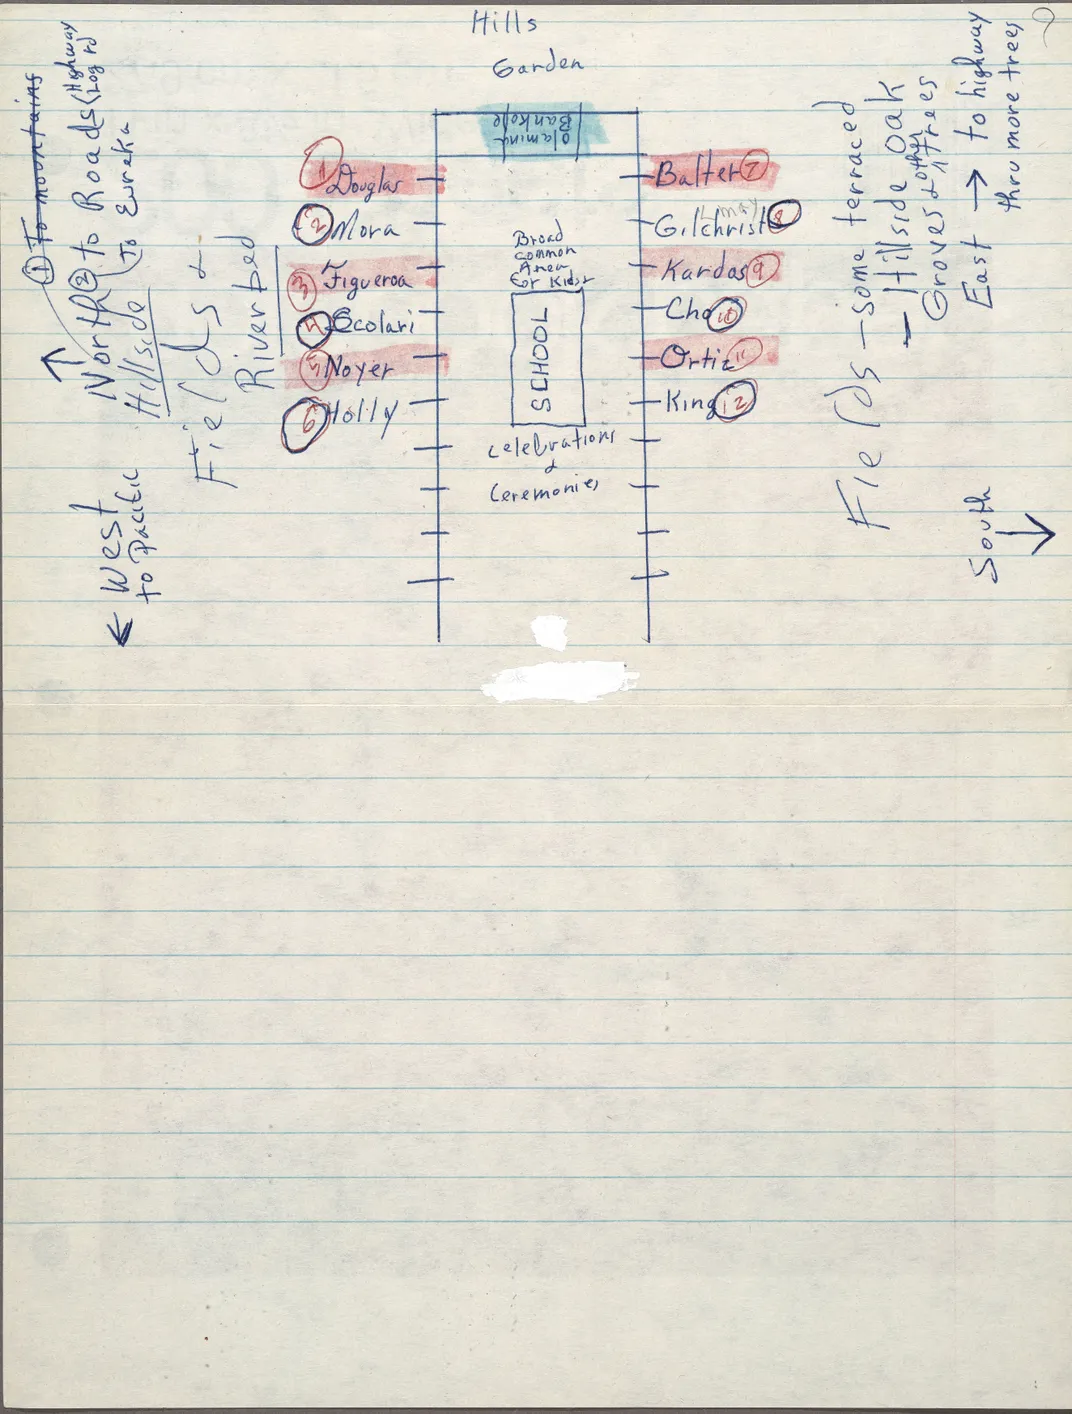 Hills
Garden
Olamina
Bankole
① Douglas
② Mora
③ Figueroa
④ Scolari
⑤ Noyer
⑥ Holly
Balter ⑦
Gilchrist ⑧
Kardos ⑨
Cho ⑩
Ortiz ⑪
King ⑫
Broad
common
Area
for Kids
SCHOOL
Celebrations
&
Ceremonies
① To mountains
North ② to Roads (Highway
Log rd
(To Eureka
Hillside
Fields &
Riverbed
West
to Pacific
Fields — some terraced
— Hillside oak
Groves & other trees
East → to highway
thru more trees
South